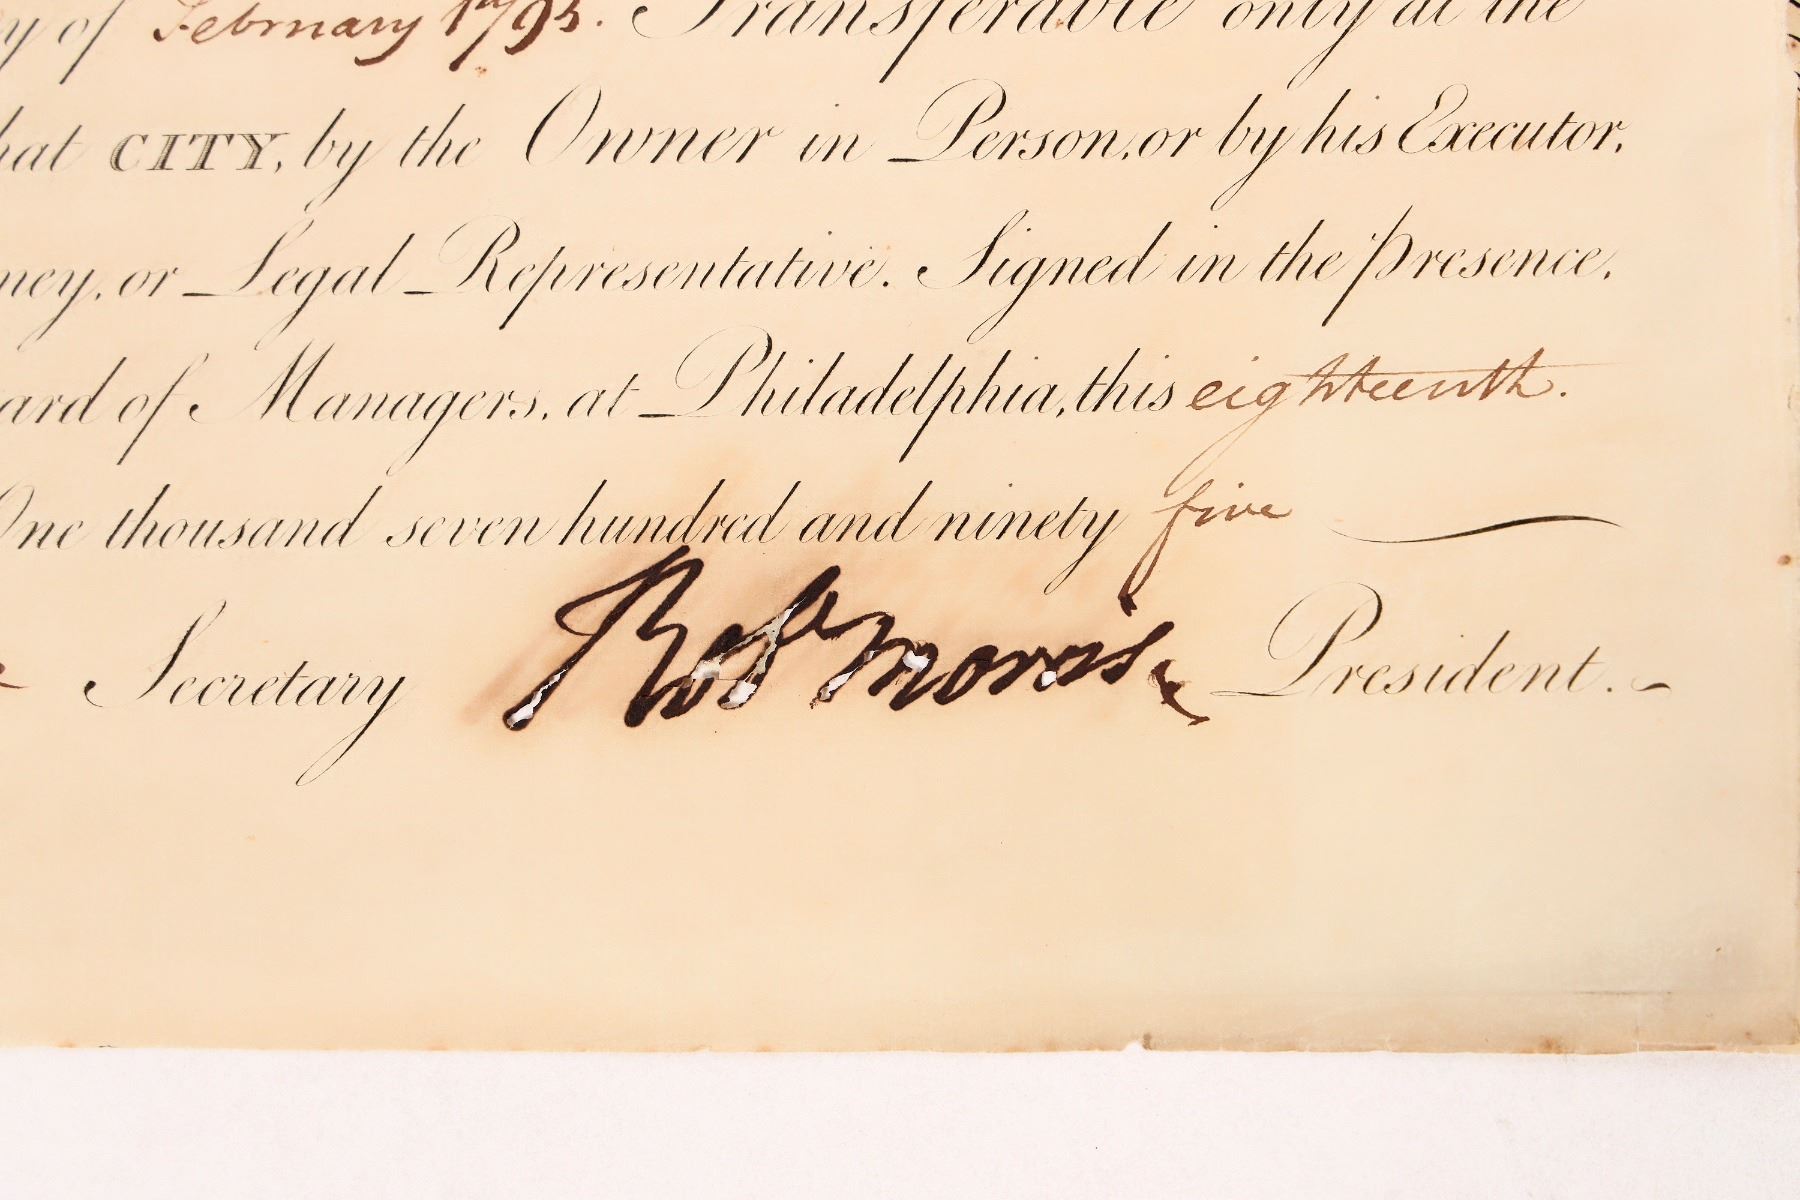 y of February 1795. Transferable only at the
hat CITY, by the Owner in Person, or by his Executor,
ney, or Legal Representative. Signed in the presence,
ard of Managers, at Philadelphia, this eighteenth.
One thousand seven hundred and ninety five
Secretary Robt Morris President.